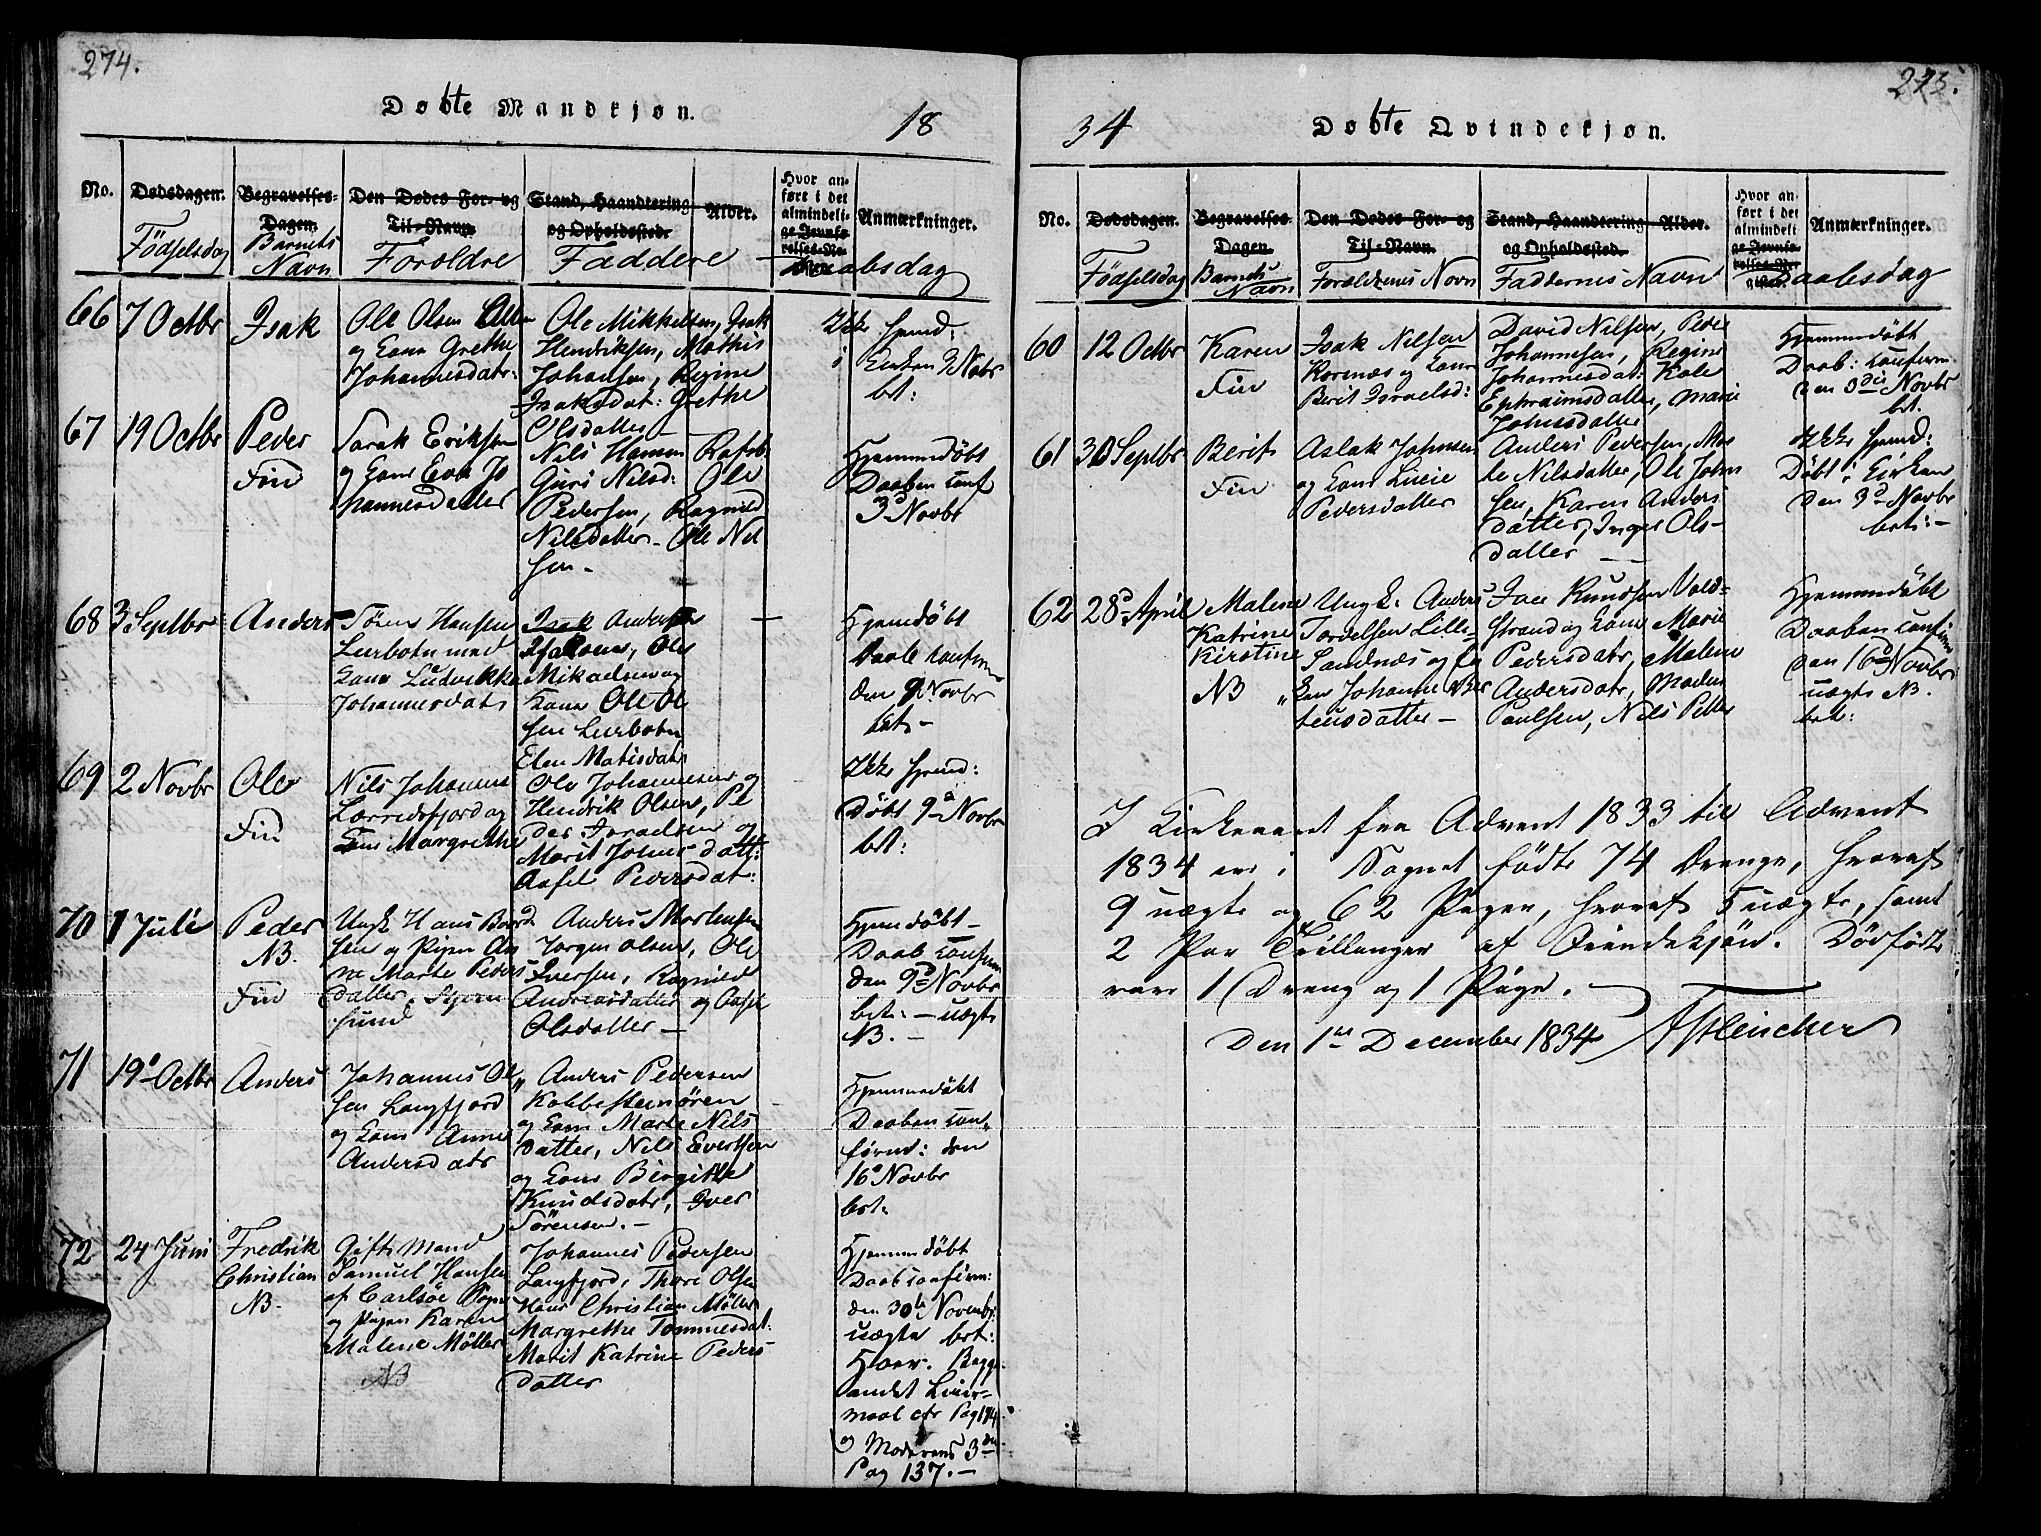 274.
Døbte Mandkjøn.
18
No. Dødsdagen. Begravelses-Dagen. Den Dødes For- og Til-Navn Stand, Haandtering og Opholdssted. Alder. Hvor anført i det almindelige Jevnførelses-Re- Anmærkninger.
Fødselsdag Barnets Navn Forældre Faddere Daabsdag
66 7 Octbr Isak
Ole Olsen
og Kone Grethe
Johannesdatr:
Ole Mikkelsen, Isak
Hendriksen, Mathis
Johansen, Regine
Isaksdat: Grethe
Olsdatter
Ikke hjemd.
i Kirken 9 Novbr
bt:
67 19 Octbr Peder
Fin
Sarak Eriksen
og Kone Eva Jo
hannesdatter
Nils Hansen
Guri Nilsd: Ole
Pedersen, Ragnild
Nilsdatter - Ole Nil
sen -
Hjemmedøbt
Daaben conf
3d Novbr
68 3 Septbr Anders
Søren Hansen
Lerbotn med
Kone Ludvikke
Johannesdatr
Isak Andersen
Ole
Mikaelsen og
Kone Ole Ol
sen Lerbotn
Elen Matisdatr
Hjemdøbt
Daab confirm
den 9 Novbr
bt -
69 2 Novbr Ole
Fin
Nils Johannes
Lerredsfjord og
Kone Margrethe
Ole Johannesen og
Hendrik Olsen, Pe
der Israelsen og
Marit Johns datt:
Aasel Pedersdat:
Ikke hjemd:
Døbt 9d Novbr
bt:
70 1 Juli Peder
NB.
Fin
Ungk Hans
sen og Pigen An
ne Marte Peders
datter, Stjern
sund
Anders Mortensen
Jørgen Olsen, Ole
Iversen, Ragnild
Andreasdatter og Aasel
Olsdatter -
Hjemdøbt -
Daab confirm
den 9d Novbr
bet: - uægte
NB. -
71 19d Octbr Anders
Johannes Ol
sen Langfjord
og Kone Anne
Andersdatr
Anders Pedersen
Kobbesteinøren
og Kone Marte Nils
datter, Nils Evertsen
og Kone Birgithe
Knudsdatr, Iver
Sørensen. -
Hjemmedøbt
Daaben con
førm: den
16d Novbr
bet.
72 24 Juni Fredrik
Christian
NB.
Gift Mand
Samuel Hansen
af Carlsøe Sogn
og Pigen Karen
Malene Møller
NB
Johannes Pedersen
Langfjord, Thore Olsen
Hans Christian Møller
Margrethe Tommesdat:
Marit Katrine Peders
datter
Hjemmedøbt
Daab confirm:
den 30te Novembr:
uægte bet:
Pag 194
og Moderens 3die
Pag 137. -
275.
34
Døbte Qvindekjøn.
No. Dødsdagen. Begravelses-Dagen. Den Dødes For- og Til-Navn. Stand, Haandtering og Opholdssted. Alder. Hvor anført i det almindelige Jevnførelses-Re- Anmærkninger.
Fødselsdag Barnets Navn Forældrenes Navn Faddernes Navn Daabsdag
60 12 Octbr Karen
Fin
Isak Nilsen
Kornæs og Kone
Berit Israelsd:
David Nilsen, Peder
Johannesen, Regine
Johannesdat: Kale
Ephraimsdatter, Marie
Johnsdatter
Hjemmedøbt
Daab: confirm
den 3die Novbr
bet.
61 30 Septbr Berit
Fin
Aslak Johnsen
og Kone Lucie
Pedersdatter
Anders Pedersen, Mar
te Nilsdatter, Ole John
sen, Karen Anders
datter, Inger Ols-
datter -
Ikke hjemd:
Døbt i Kirken
den 3d Novbr
bet: -
62 28d April Malene
Katrine
Kirstine
NB
Ungk. Anders
Torvelsen Lille-
Sandnæs og En
ken Johanne
teusdatter -
Knudsen Vold-
strand og Kone Marie
Pedersdatr, Malene
Andersdatr, Mades
Paulsen, Nils Petter
Hjemmedøbt
Daaben confirm
den 16d Novbr
uægte NB.
bet:
I Kirkeaaret fra Advent 1833 til Advent
1834 er i Sognet fødte 74 Drenge, hvoraf
9 uægte og 62 Piger, hvoraf 5 uægte, samt
2 Par Tvillinger af Qvindekjøn. Dødfødte
vare 1 Dreng og 1 Pige. -
Den 1ste December 1834 A Fleischer